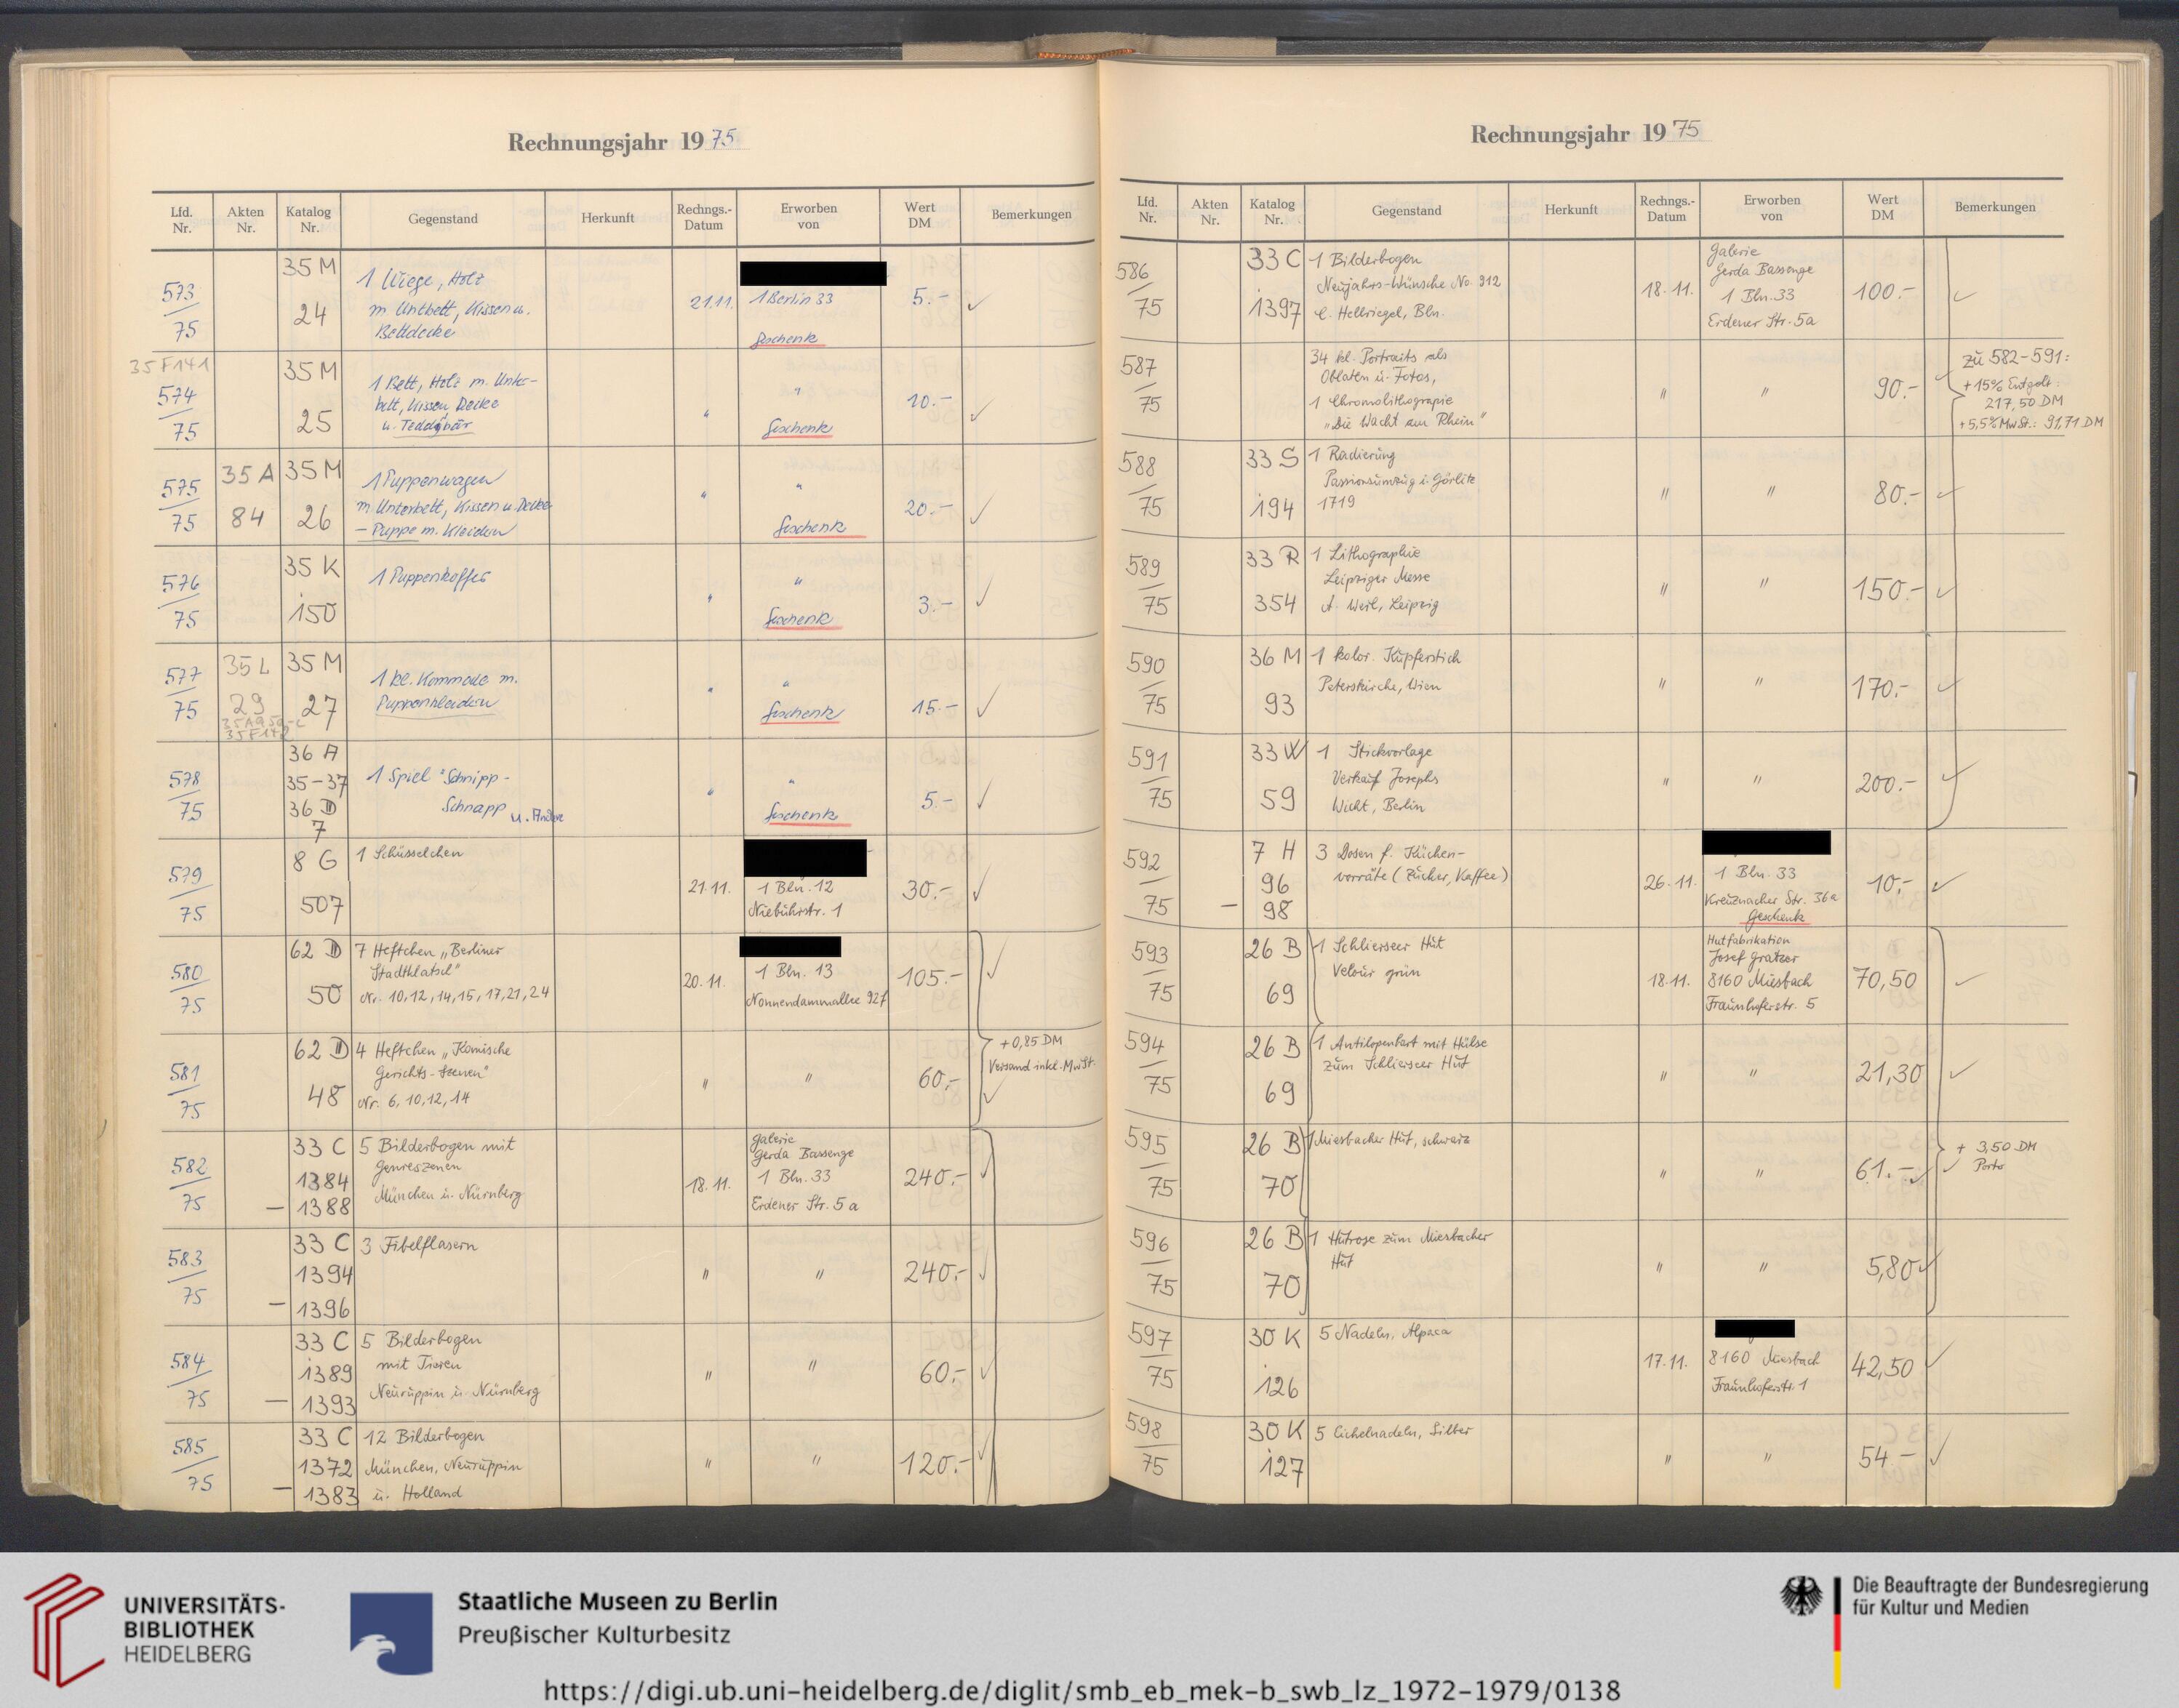 Rechnungsjahr 1975
Lfd. Nr. Akten Nr. Katalog Nr. Gegenstand Herkunft Rechngs.-Datum Erworben von Wert DM Bemerkungen
573/75 35 M 24
1 Wiege, Holz
m. Untbett, Kissen u.
Bettdecke
21.11. 1 Berlin 33 5.- ✓
Geschenk
35 F 141
574/75 35 M 25
1 Bett, Holz m. Unter-
bett, Kissen, Decke
u. Teddybär
" " 10.- ✓
Geschenk
575/75 35 A 84 35 M 26
1 Puppenwagen
m Unterbett, Kissen u. Decke
– Puppe m. Kleidern
" " 20.- ✓
Geschenk
576/75 35 K 150
1 Puppenkoffer
" " 3.- ✓
Geschenk
577/75 35 L 29 35 M 27
35 A 95 a-c
35 F 142
1 kl. Kommode m.
Puppenkleidern
" " 15.- ✓
Geschenk
578/75 36 A 35-37 36 D 7
1 Spiel "Schnipp-
Schnapp u. Andere
" " 5.- ✓
Geschenk
579/75 8 G 507
1 Schüsselchen
21.11. 1 Bln. 12 30.- ✓
Niebührstr. 1
580/75 62 D 50
7 Heftchen „Berliner
Stadtklatsch"
Nr. 10, 12, 14, 15, 17, 21, 24
20.11. 1 Bln. 13 105.- ✓
Nonnendammallee 92f
581/75 62 D 48
4 Heftchen „Komische
Gerichts-Scenen"
Nr. 6, 10, 12, 14
" " 60,- ✓
+0,85 DM
Versand inkl. MwSt.
582/75 33 C 1384 – 1388
5 Bilderbogen mit
Genreszenen
München u. Nürnberg
18.11. Galerie
Gerda Bassenge
1 Bln. 33
Erdener Str. 5a
240.- ✓
583/75 33 C 1394 – 1396
3 Fibelflasern
" " 240.- ✓
584/75 33 C 1389 – 1393
5 Bilderbogen
mit Tieren
Neuruppin u. Nürnberg
" " 60,- ✓
585/75 33 C 1372 – 1383
12 Bilderbogen
München, Neuruppin
u. Holland
" " 120.- ✓
Rechnungsjahr 1975
Lfd. Nr. Akten Nr. Katalog Nr. Gegenstand Herkunft Rechngs.-Datum Erworben von Wert DM Bemerkungen
586/75 33 C 1397
1 Bilderbogen
Neujahrs-Wünsche No. 912
C. Hellriegel, Bln.
18.11. Galerie
Gerda Bassenge
1 Bln. 33
Erdener Str. 5a
100.- ✓
587/75
34 kl. Portraits als
Oblaten u. Fotos,
1 Chromolithograpie
„Die Wacht am Rhein"
" " 90.- ✓
zu 582-591:
+15% Entgelt:
217,50 DM
+5,5% MwSt.: 91,71 DM
588/75 33 S 194
1 Radierung
Passionsumzug i. Görlitz
1719
" " 80.- ✓
589/75 33 R 354
1 Lithographie
Leipziger Messe
A. Werl, Leipzig
" " 150.- ✓
590/75 36 M 93
1 kolor. Kupferstich
Peterskirche, Wien
" " 170.- ✓
591/75 33 W 59
1 Stickvorlage
Verkauf Josephs
Wicht, Berlin
" " 200.- ✓
592/75 7 H 96 – 98
3 Dosen f. Küchen-
vorräte (Zucker, Kaffee)
26.11. 1 Bln. 33
Kreuznacher Str. 36a
Geschenk
10,- ✓
593/75 26 B 69
1 Schlierseer Hut
Velour grün
18.11. Hutfabrikation
Josef Gratzer
8160 Miesbach
Fraunhoferstr. 5
70,50 ✓
594/75 26 B 69
1 Antilopenbart mit Hülse
zum Schlierseer Hut
" " 21,30 ✓
595/75 26 B 70
1 Miesbacher Hut, schwarz
" " 61.- ✓
+ 3,50 DM
Porto
596/75 26 B 70
1 Hutrose zum Miesbacher
Hut
" " 5,80 ✓
597/75 30 K 126
5 Nadeln, Alpaca
17.11. 8160 Miesbach
Fraunhoferstr. 1
42,50 ✓
598/75 30 K 127
5 Eichelnadeln, Silber
" " 54.- ✓
UNIVERSITÄTS-
BIBLIOTHEK
HEIDELBERG
Staatliche Museen zu Berlin
Preußischer Kulturbesitz
Die Beauftragte der Bundesregierung
für Kultur und Medien
https://digi.ub.uni-heidelberg.de/diglit/smb_eb_mek-b_swb_lz_1972-1979/0138